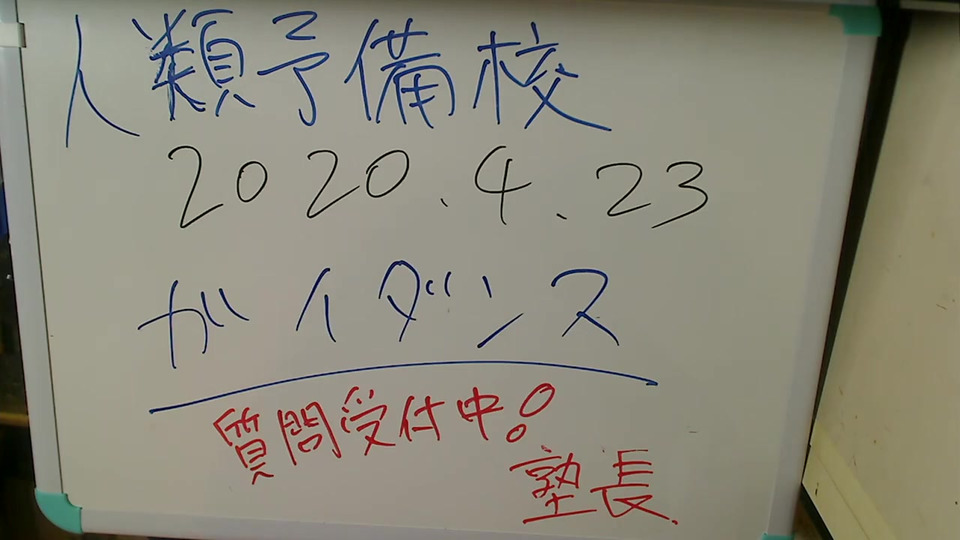 人類予備校
2020.4.23
ガイダンス
質問受付中!
塾長